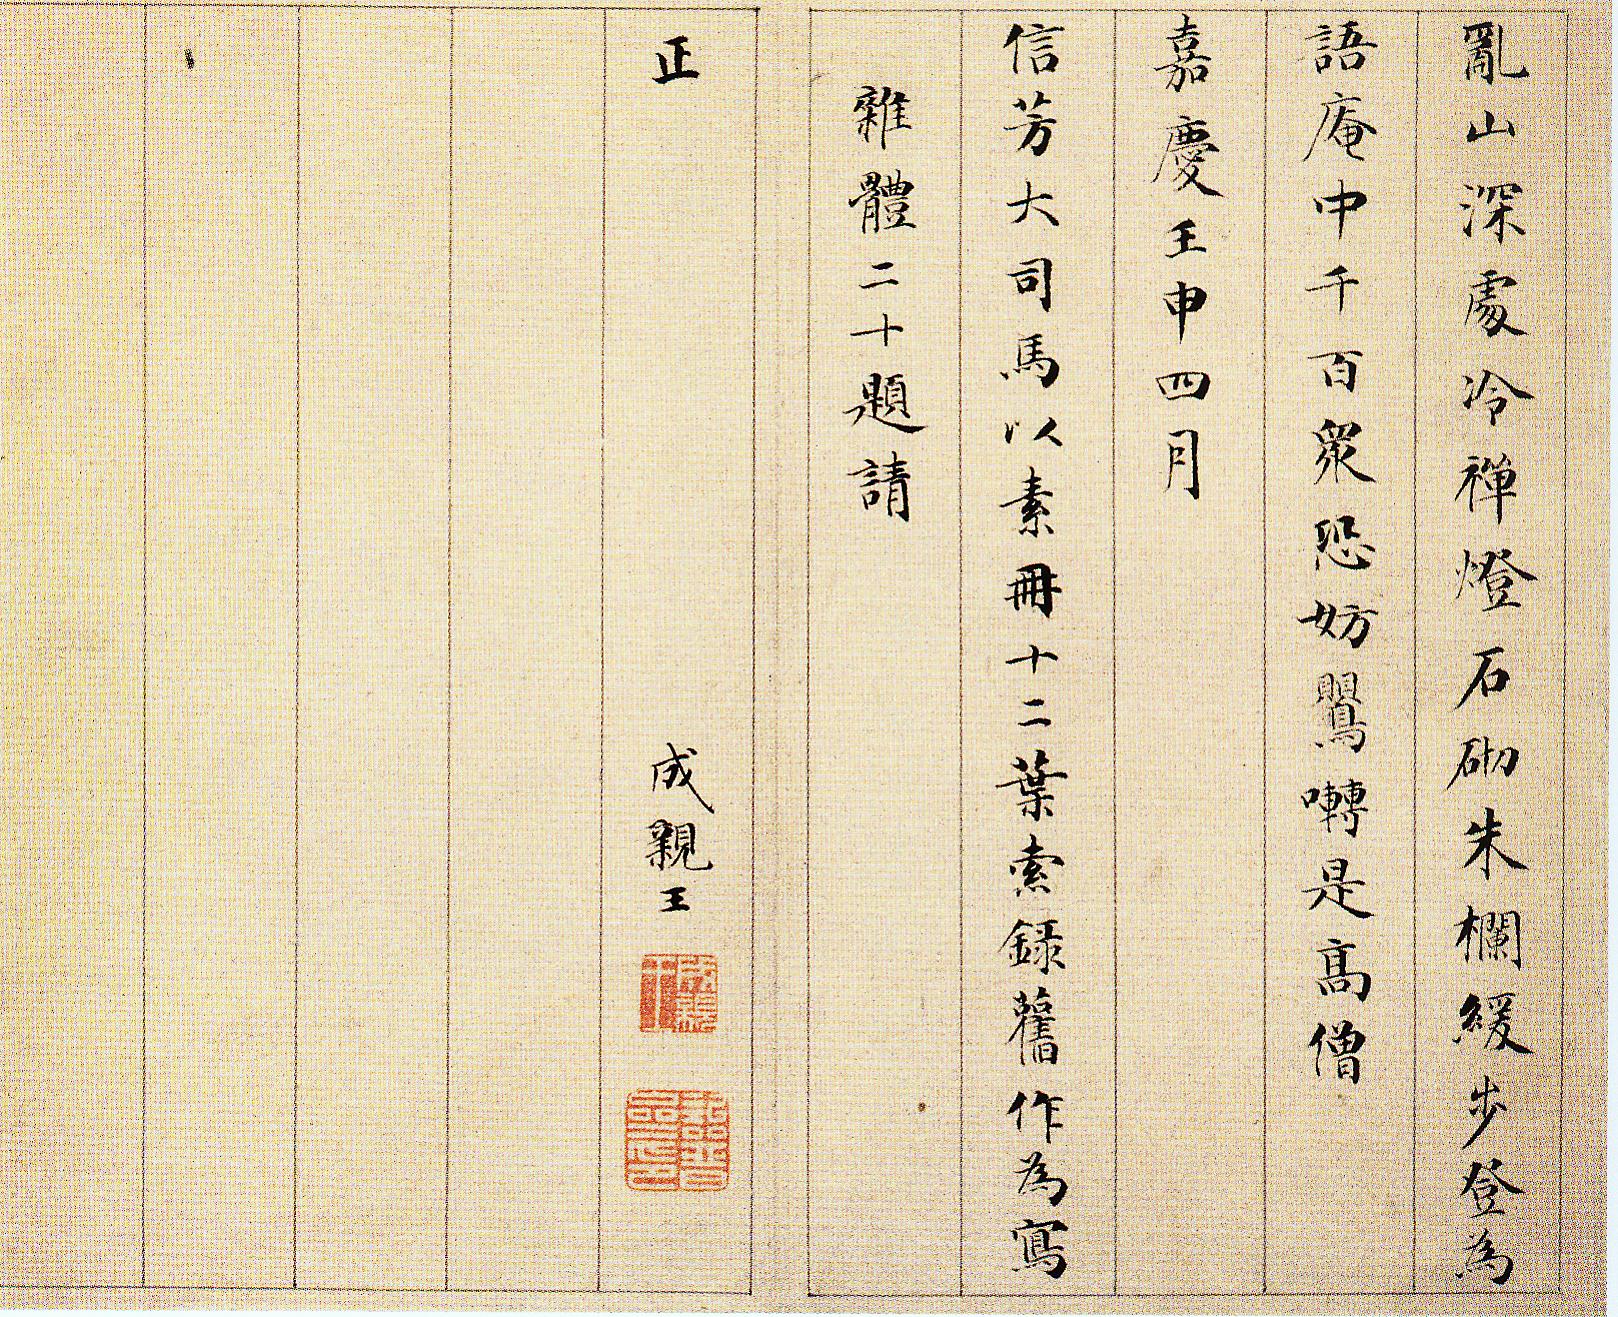 亂山深處冷禅燈石砌朱欄緩步登為
語庵中千百衆恐妨鸎囀是髙僧
嘉慶壬申四月
信芳大司馬以素冊十二葉索録舊作為寫
雜體二十題請
正
成親王